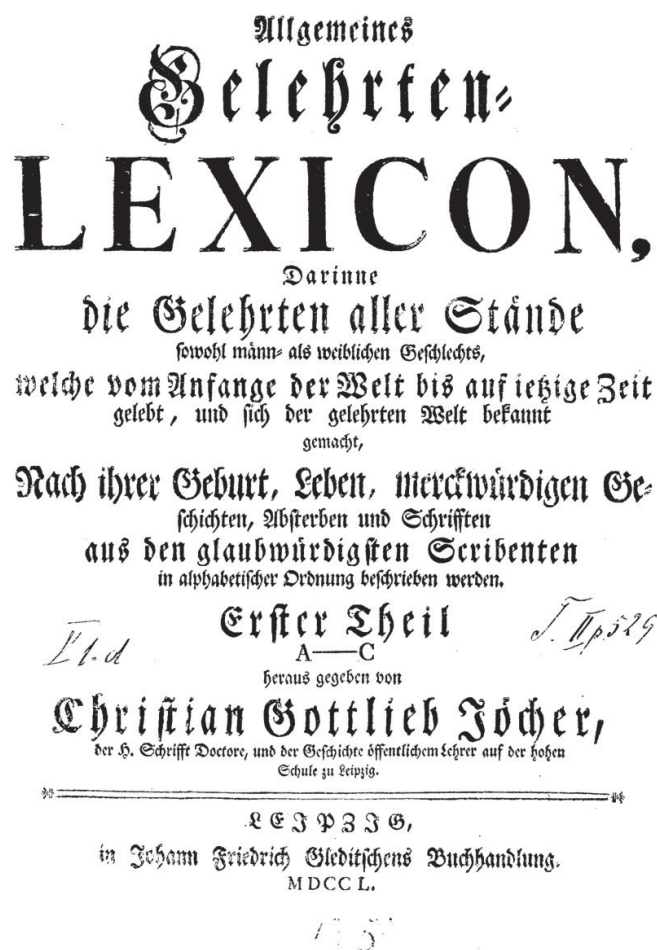 Allgemeines
Gelehrten-
LEXICON,
Darinne
die Gelehrten aller Stände
sowohl männ- als weiblichen Geschlechts,
welche vom Anfange der Welt bis auf ietzige Zeit
gelebt, und sich der gelehrten Welt bekannt
gemacht,
Nach ihrer Geburt, Leben, merckwürdigen Ge-
schichten, Absterben und Schrifften
aus den glaubwürdigsten Scribenten
in alphabetischer Ordnung beschrieben werden.
Erster Theil
A——C
heraus gegeben von
Christian Gottlieb Jöcher,
der H. Schrifft Doctore, und der Geschichte öffentlichem Lehrer auf der hohen
Schule zu Leipzig.
LEIPZIG,
in Johann Friedrich Gleditschens Buchhandlung.
MDCC L.